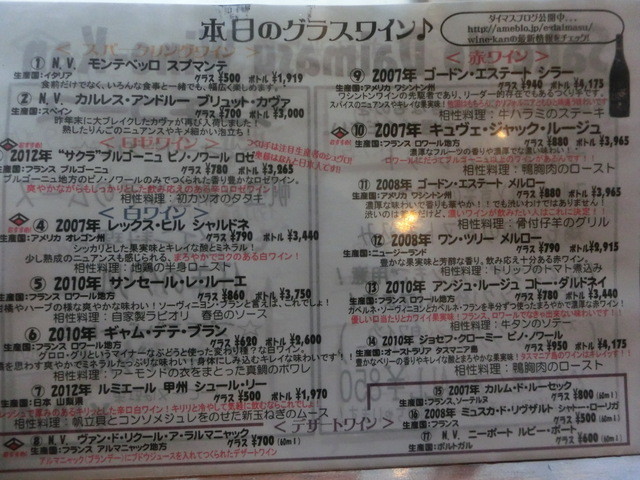 本日のグラスワイン♪
ダイマスブログ公開中…
http://ameblo.jp/e-daimasu/
wine-kanの最新情報をチェック!
＜ スパークリングワイン ＞
① N.V. モンテベッロ スプマンテ
生産国:イタリア グラス ¥500 ボトル ¥1,919
食前だけでなく、いろんな食事と一緒でも、幅広く楽しめます。
② N.V. カルレス・アンドルー ブリュット・カヴァ
生産国:スペイン グラス ¥700 ボトル ¥3,000
昨年末に大ブレイクしたカヴァが再び入荷しました
熟したりんごのニュアンスやキメ細かい泡立ち!
＜ロゼワイン＞
2012年 "サクラ"ブルゴーニュ ピノ・ノワール ロゼ
生産国:フランス ブルゴーニュ グラス ¥780 ボトル ¥3,965
ブルゴーニュ地方のピノ・ノワールのみでつくられた香り豊かなロゼワイン。
爽やかながらもしっかりとした飲み応えのある辛口ロゼワイン
相性料理:初カツオのタタキ
＜白ワイン＞
④ 2007年 レックス・ヒル シャルドネ
生産国:アメリカ オレゴン州 グラス ¥790 ボトル ¥3,440
シッカリとした果実味とキレイな酸とミネラル!
少し熟成のニュアンスも感じられる、まろやかでコクのある白ワイン!
相性料理:地鶏の半身ロースト
⑤ 2010年 サンセール・レ・ルーエ
生産国:フランス ロワール地方 グラス ¥860 ボトル ¥3,750
柑橘やハーブの様な爽やかな味わい!ソーヴィニヨン・ブランと言えば、これでしょ!
相性料理:自家製ラビオリ 春色のソース
6 2010年 ギャム・デテ・ブラン
生産国:フランス ロワール地方 グラス ¥620 ボトル ¥2,600
グロロ・グリというマイナーなぶどうを使った変わり種?な白ワイン!
相性料理:アーモンドの衣をまとった真鯛のポワレ
⑦ 2012年 ルミエール 甲州 シュール・リー
生産国:日本 山梨県 グラス ¥500 ボトル ¥1,970
相性料理:帆立貝とコンソメジュレをのせた新玉ねぎのムース
＜デザートワイン＞
8 N.V. ヴァン・ド・リクール・ア・ラルマニャック
生産国:フランス アルマニャック地方 グラス ¥700 (60ml)
アルマニャック(ブランデー)にブドウジュースを入れてつくられたデザートワイン
＜赤ワイン＞
⑨ 2007年 ゴードン・エステート シラー
生産国:アメリカ ワシントン州 グラス ¥940 ボトル ¥4,175
ワシントンワインの先駆者であり、リーダー的存在でもあるワイナリー。
相性料理:牛ハラミのステーキ
⑩ 2007年 キュヴェ・ジャック・ルージュ
生産国:フランス ロワール地方 グラス ¥880 ボトル ¥3,965
濃厚なフルーツの香りや濃厚で優しい果実味!
ロワールにだってフルボディー以上のワインがあるんです!!
相性料理:鴨胸肉のロースト
⑪ 2008年 ゴードン・エステート メルロー
生産国:アメリカ ワシントン州 グラス ¥880 ボトル ¥3,965
濃厚な味わいで香りも華やか!!でも渋いわけではありません
渋いのはダメだけど、濃いワインが飲みたい人はこれに決定!
相性料理:骨付仔羊のグリル
⑫ 2008年 ワン・ツリー メルロー
生産国:ニュージーランド グラス ¥790 ボトル ¥2,915
豊かな果実味と芳醇な香り。飲み応え十分ある赤ワイン。
相性料理:トリップのトマト煮込み
⑬ 2010年 アンジュ・ルージュ コトー・ダルドネイ
生産国:フランス ロワール地方 グラス ¥780 ボトル ¥3,440
カベルネ・ソーヴィニヨンとカベルネ・フランを半分ずつ使ったまろやかで濃厚な赤ワイン!
相性料理:牛タンのソテー
⑭ 2010年 ジョセフ・クローミー ピノ・ノワール
生産国:オーストラリア タスマニア島 グラス ¥950 ボトル ¥4,175
豊かなベリーの香りやキレイな酸とまろやかな果実味!タスマニア島のワインはキレイッす!!
相性料理:鴨胸肉のロースト
⑮ 2007年 カルム・ド・リューセック
生産国:フランス・ソーテルヌ グラス ¥800 (60ml)
⑯ 2008年 ミュスカ・ド・リヴザルト シャトー・ローリガ
生産国:フランス グラス ¥500 (60ml)
⑰ N.V. ニーポート ルビー・ポート
生産国:ポルトガル グラス ¥600 (60ml)